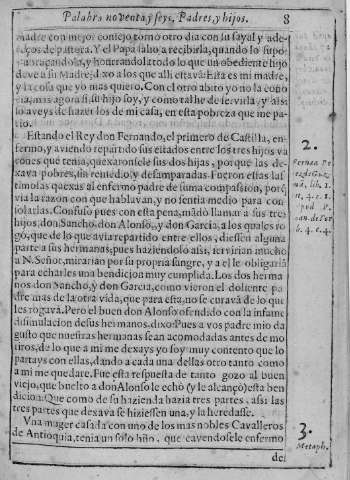 Palabra noventa y seys, Padres, y hijos. 8
madre con mejor consejo tornò otro dia con su sayal y ade-
reços de pastora. Y el Papa salio a recibirla, quando lo supo
abraçandola, y honrandola todo lo que un obediente hijo
deve a su Madre, dixo a los que alli estavã: Esta es mi madre,
y la cosa que yo mas quiero. Con el otro abito yo no la cono
cia, mas agora si, su hijo soy, y como tal he de servirla, y assi
lo aveys de hazer los de mi casa, en esta pobreza que me pa-
rio.
Estando el Rey don Fernando, el primero de Castilla, en-
fermo, y aviendo repartido sus estados entre los tres hijos va
rones que tenia, quexaronsele sus dos hijas, porque las de-
xava pobres, sin remedio, y desamparadas. Fueron estas las
timosas quexas al enfermo padre de suma compassion, porq̃
via la razon con que hablavan, y no sentia medio para con-
solarlas. Confuso pues con esta pena, mãdò llamar a sus tres
hijos, don Sancho, don Alonso, y don Garcia, a los quales ro
gò, que de lo que avia repartido entre ellos, diessen alguna
parte a sus hermanas, pues haziendolo assi, servirian mucho
a N. Señor, mirarian por su propria sangre, y a el le obligariã
para echarles una bendicion muy cumplida. Los dos herma
nos don Sancho, y don Garcia, como vieron el doliente pa
dre mas de la otra vida, que para esta, no se curavã de lo que
les rogavà. Pero el buen don Alonso ofendido con la infame
dissimulacion de sus hermanos, dixo: Pues a vos padre mio da
gusto que nuestras hermanas sean acomodadas antes de mo
riros, de lo que a mi me dexays yo soy muy contento que lo
partays con ellas, dando a cada una dellas otro tanto como
a mi me quedare. Fue esta respuesta de tanto gozo al buen
viejo, que buelto a don Alonso le echò (y le alcançò) esta ben
dicion: Que como de su hazienda hazia tres partes, assi las
tres partes que dexava se hiziessen una, y la heredasse.
Una muger casada con uno de los mas nobles Cavalleros
de Antioquia, tenia un solo hijo, que cayendosele enfermo
de
2.
3.
Metaph.